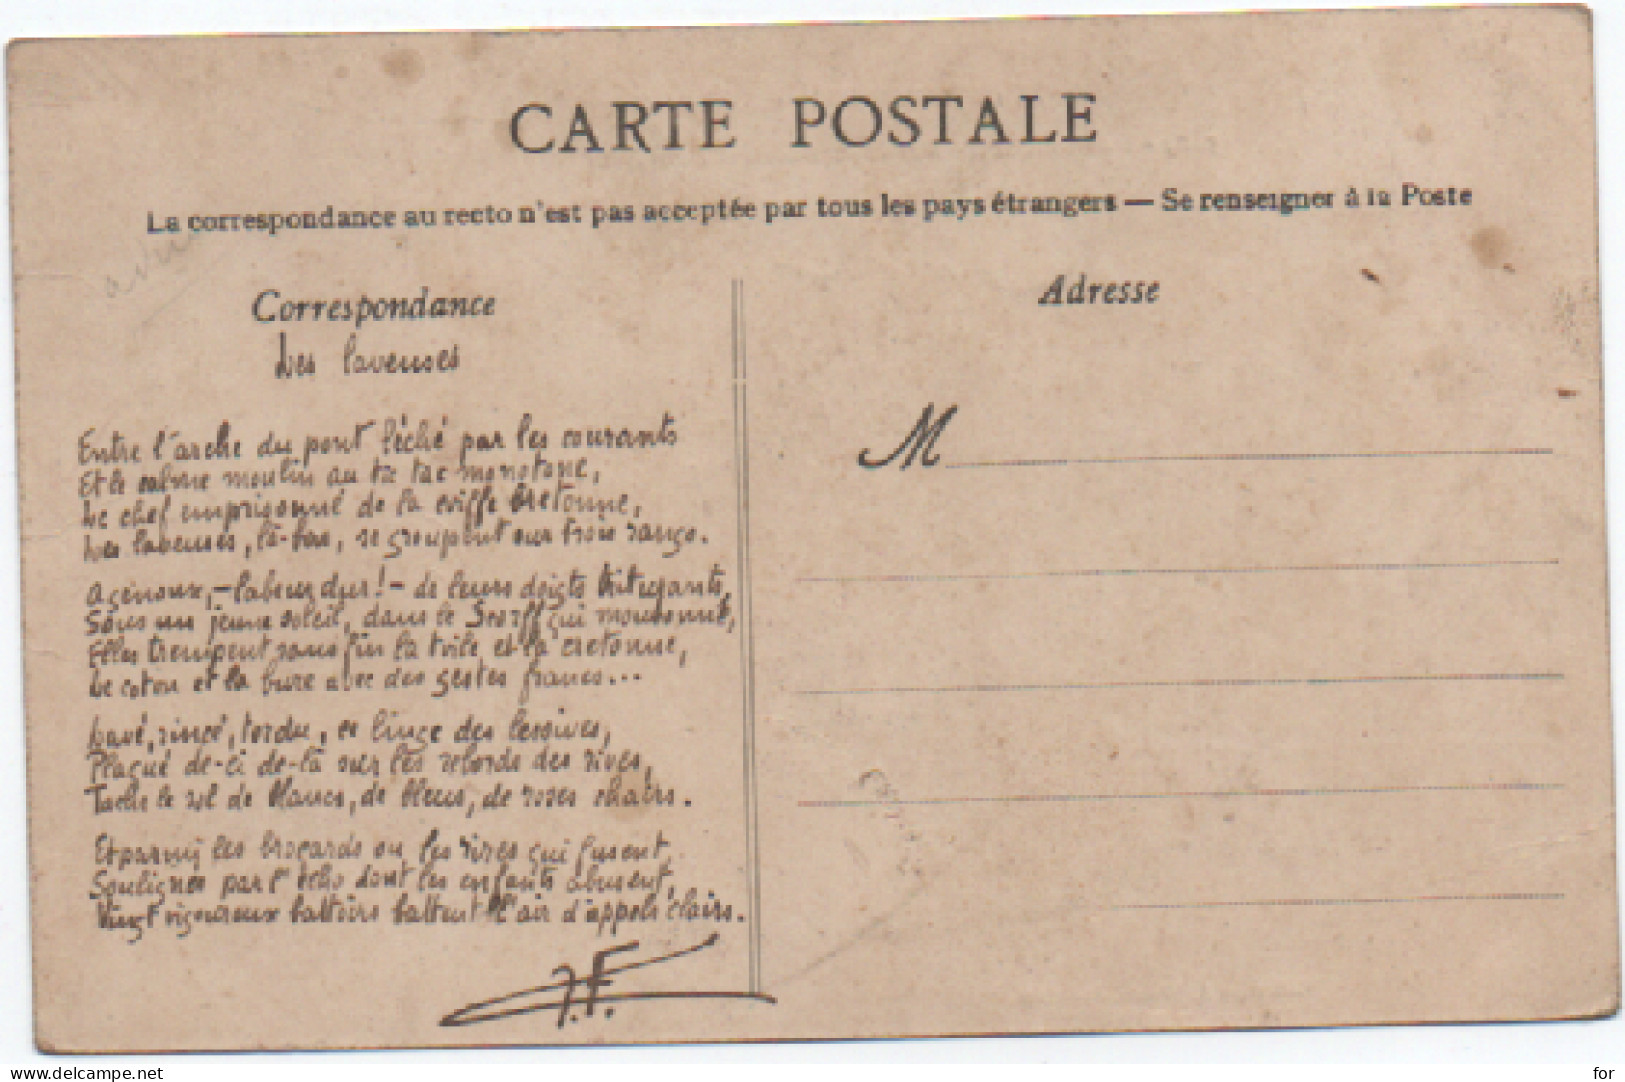 CARTE POSTALE
La correspondance au recto n'est pas acceptée par tous les pays étrangers — Se renseigner à la Poste
Correspondance
Les laveuses
Entre l'arche du pont léché par les courants
Et le calme moulin au tic tac monotone,
Le chef emprisonné de la coiffe bretonne,
Les laveuses, là-bas, se groupent sur trois rangs.
Agenoux, - labeur dur! - de leurs doigts triturants,
Sous un jeune soleil, dans le Scorff qui moutonne,
Elles trempent sans fin la toile et la cretonne,
Le coton et la bure avec des gestes francs...
Lavé, rincé, tordu, ce linge des lessives,
Plaqué de-ci de-là sur les rebords des rives,
Tache le sol de blancs, de bleus, de roses chairs.
Et parmi les brocards ou les rires qui fusent,
Soulignés par l'écho dont les enfants abusent,
Vingt vigoureux battoirs battent l'air d'appels clairs.
J.F.
Adresse
M
delcampe.net
for